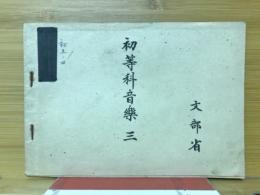 初等科音樂 三
文部省